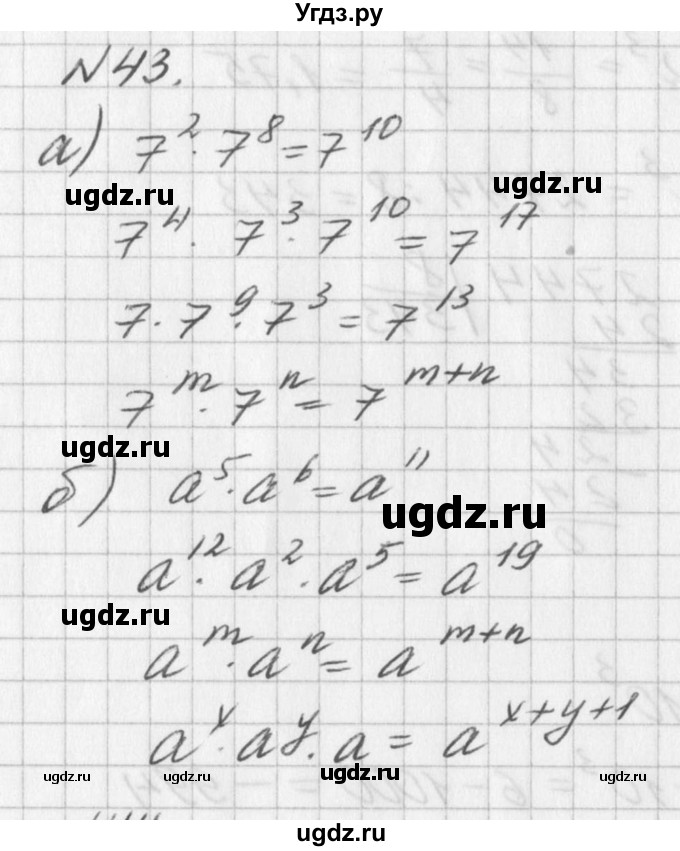 Угдз.ру
№43.
а) 7² · 7⁸ = 7¹⁰
ugdz.ru
ugdz.ru
7⁴ · 7³ · 7¹⁰ = 7¹⁷
7 · 7⁹ · 7³ = 7¹³
7ᵐ · 7ⁿ = 7ᵐ⁺ⁿ
ugdz.ru
б) a⁵ · a⁶ = a¹¹
ugdz.ru
a¹² · a² · a⁵ = a¹⁹
ugdz.ru
aᵐ · aⁿ = aᵐ⁺ⁿ
aˣ · aʸ · a = aˣ⁺ʸ⁺¹
ugdz.ru ugdz.ru ugdz.ru ugdz.ru
ugdz.ru